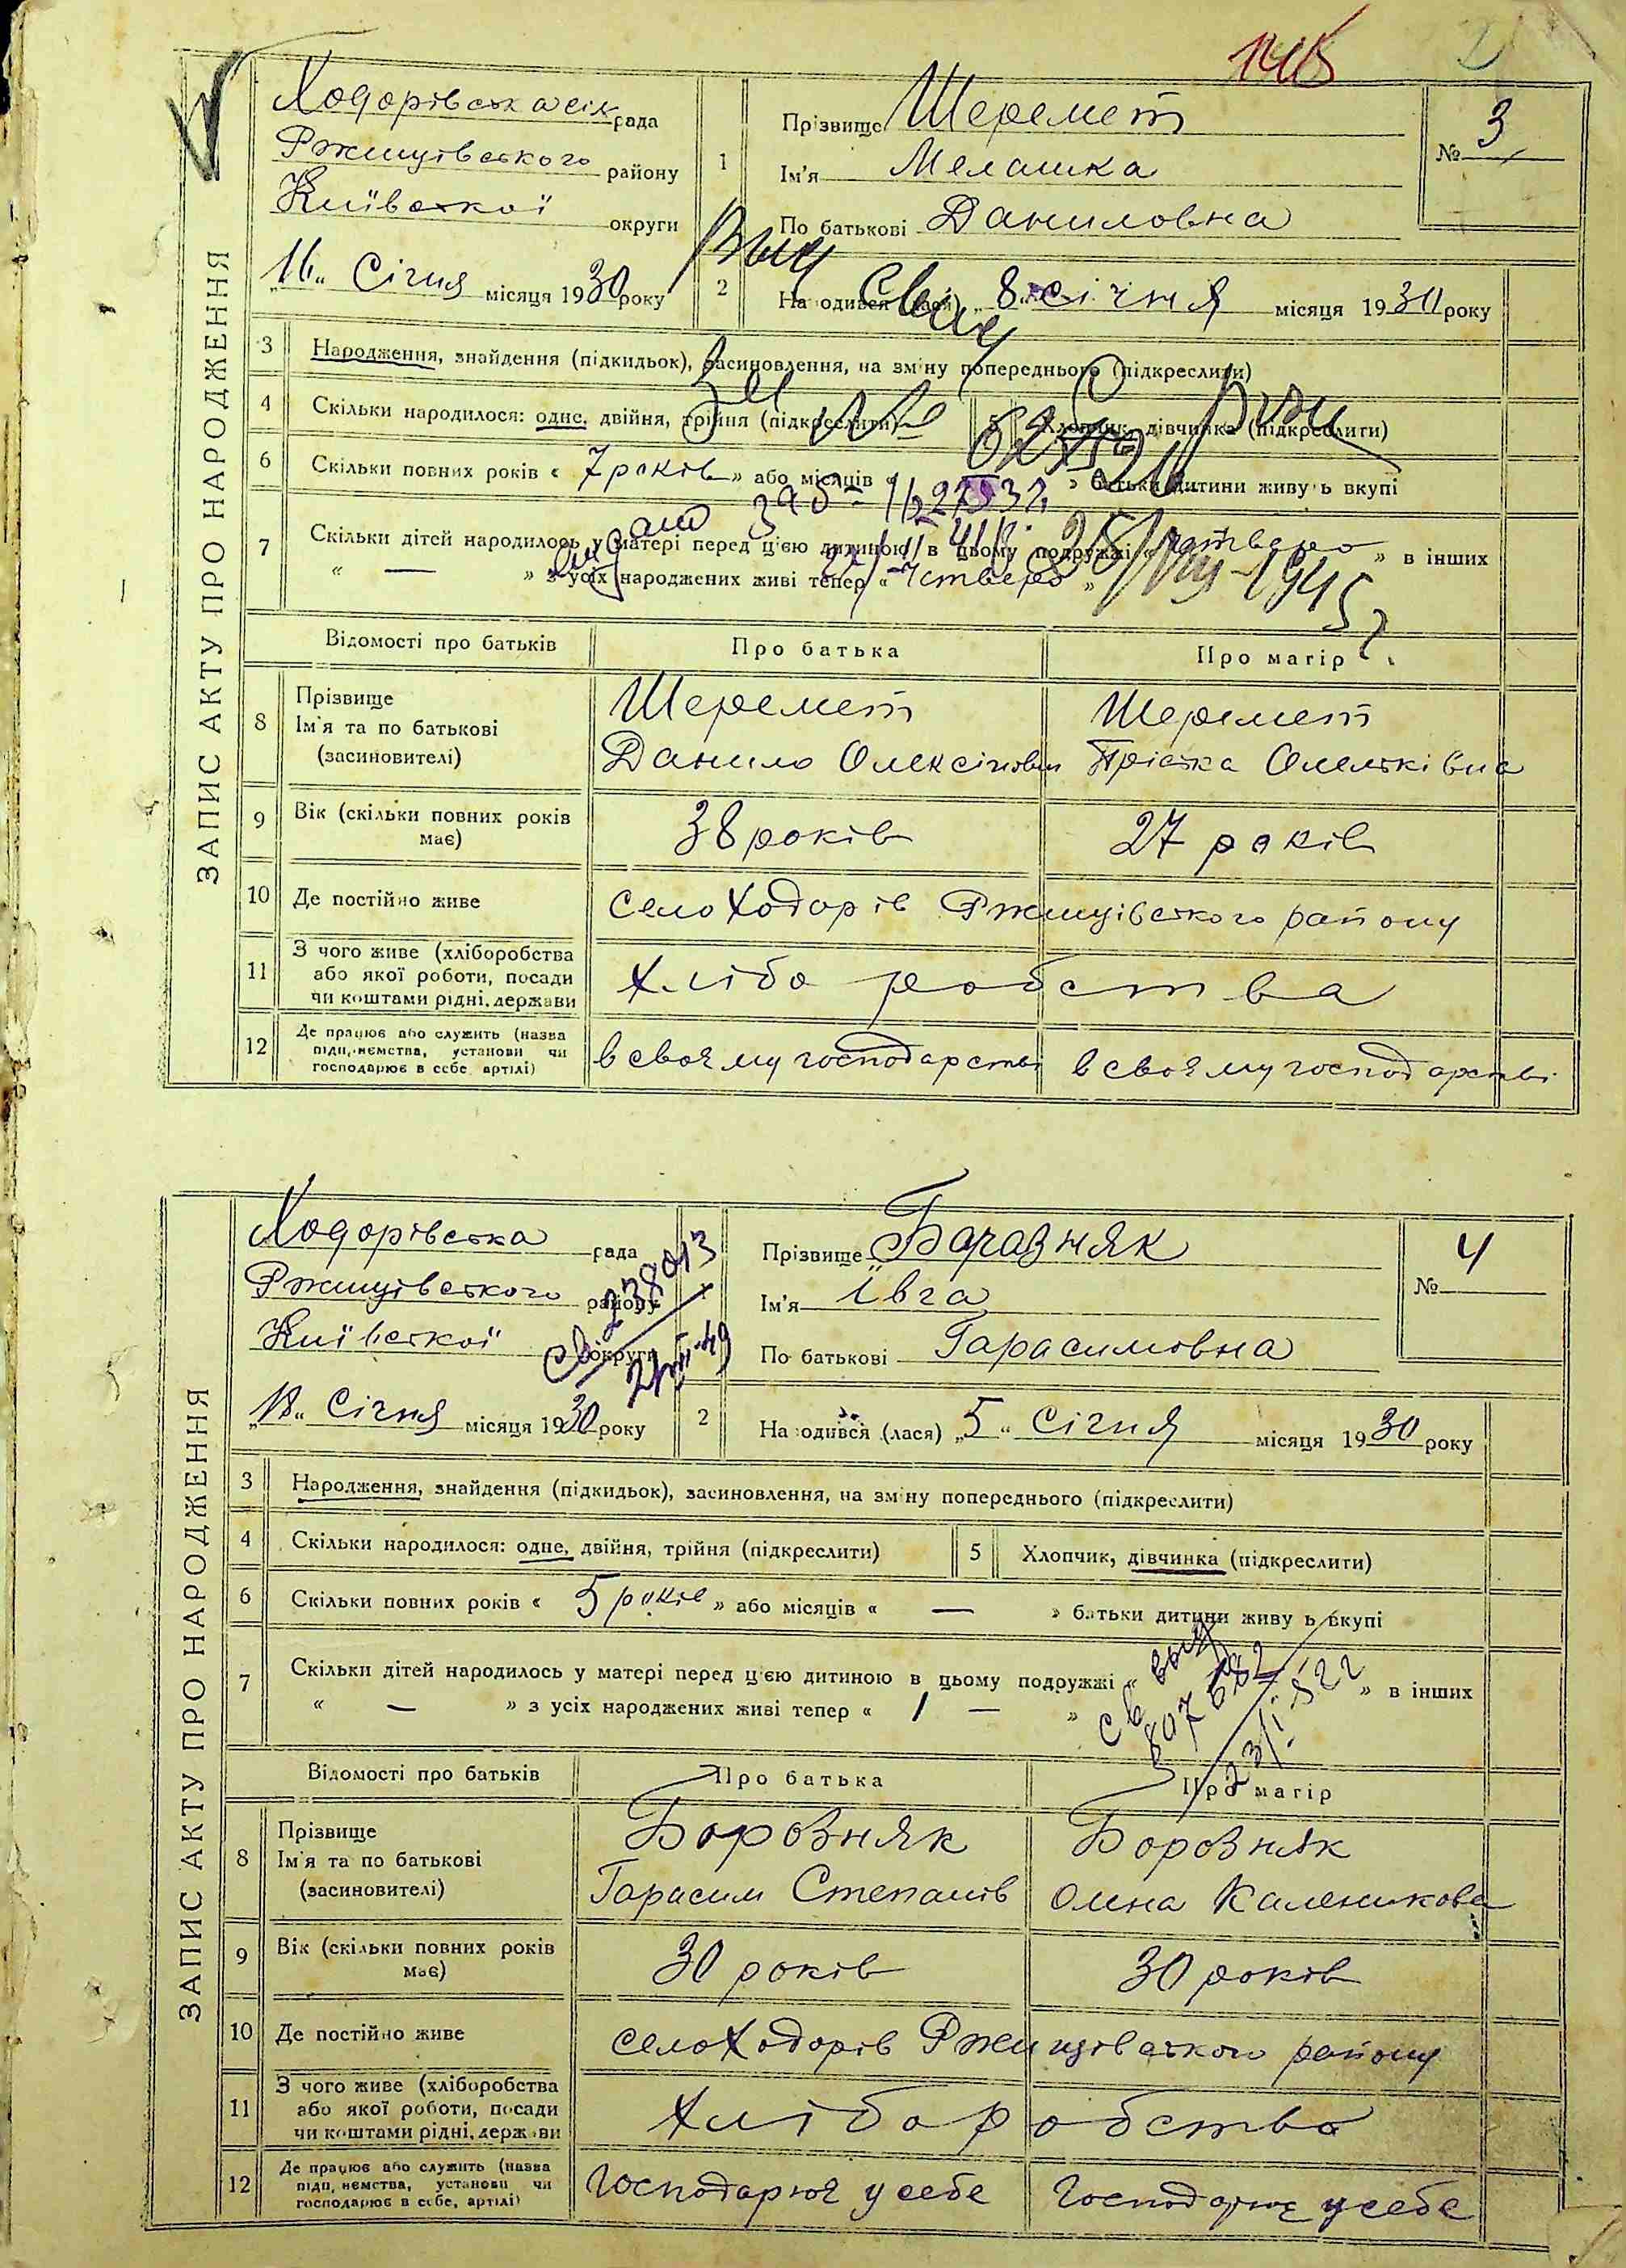 145
ЗАПИС АКТУ ПРО НАРОДЖЕННЯ
Ходорівська сіл рада
Ржищівського району
Київської округи
"16" Січня місяця 1930 року
1 Прізвище Шеремет
Ім'я Мелашка
По батькові Даниловна
№ 3
2 На одився (лася) "8" січня місяця 1930 року
3 Народження, знайдення (підкидьок), засиновлення, на зміну попереднього (підкреслити)
4 Скільки народилося: одне, двійня, трійня (підкреслити) 5 Хлопчик, дівчинка (підкреслити)
6 Скільки повних років « 7 років » або місяців « » батьки дитини живуть вкупі
7 Скільки дітей народилось у матері перед цією дитиною в цьому подружжі « четверо » в інших
« — » з усіх народжених живі тепер « четверо »
1945
Відомості про батьків Про батька Про матір
8 Прізвище Ім'я та по батькові (засиновителі)
Шеремет Шеремет
Данило Олексіїович Пріська Омельківна
9 Вік (скільки повних років має) 38 років 27 років
10 Де постійно живе село Ходорів Ржищівського району
11 З чого живе (хліборобства або якої роботи, посади чи коштами рідні, держави хліборобства
12 Де працює або служить (назва підприємства, установи чи господарює в себе, артілі) в своєму господарстві в своєму господарстві
ЗАПИС АКТУ ПРО НАРОДЖЕННЯ
Ходорівська рада
Ржищівського району
Київської округи
238013
"18" Січня місяця 1930 року
1 Прізвище Боровняк
Ім'я Івга
По батькові Гарасимовна
№ 4
2 На одився (лася) "5" Січня місяця 1930 року
3 Народження, знайдення (підкидьок), засиновлення, на зміну попереднього (підкреслити)
4 Скільки народилося: одне, двійня, трійня (підкреслити) 5 Хлопчик, дівчинка (підкреслити)
6 Скільки повних років « 5 років » або місяців « — » батьки дитини живуть вкупі
7 Скільки дітей народилось у матері перед цією дитиною в цьому подружжі « » в інших
« — » з усіх народжених живі тепер « 1 — »
Відомості про батьків Про батька Про матір
8 Прізвище Ім'я та по батькові (засиновителі)
Боровняк Боровняк
Гарасим Степанів Олена Каленикова
9 Вік (скільки повних років має) 30 років 30 років
10 Де постійно живе село Ходорів Ржищівського району
11 З чого живе (хліборобства або якої роботи, посади чи коштами рідні, держави хліборобство
12 Де працює або служить (назва підприємства, установи чи господарює в себе, артілі) Господарює у себе Господарює у себе